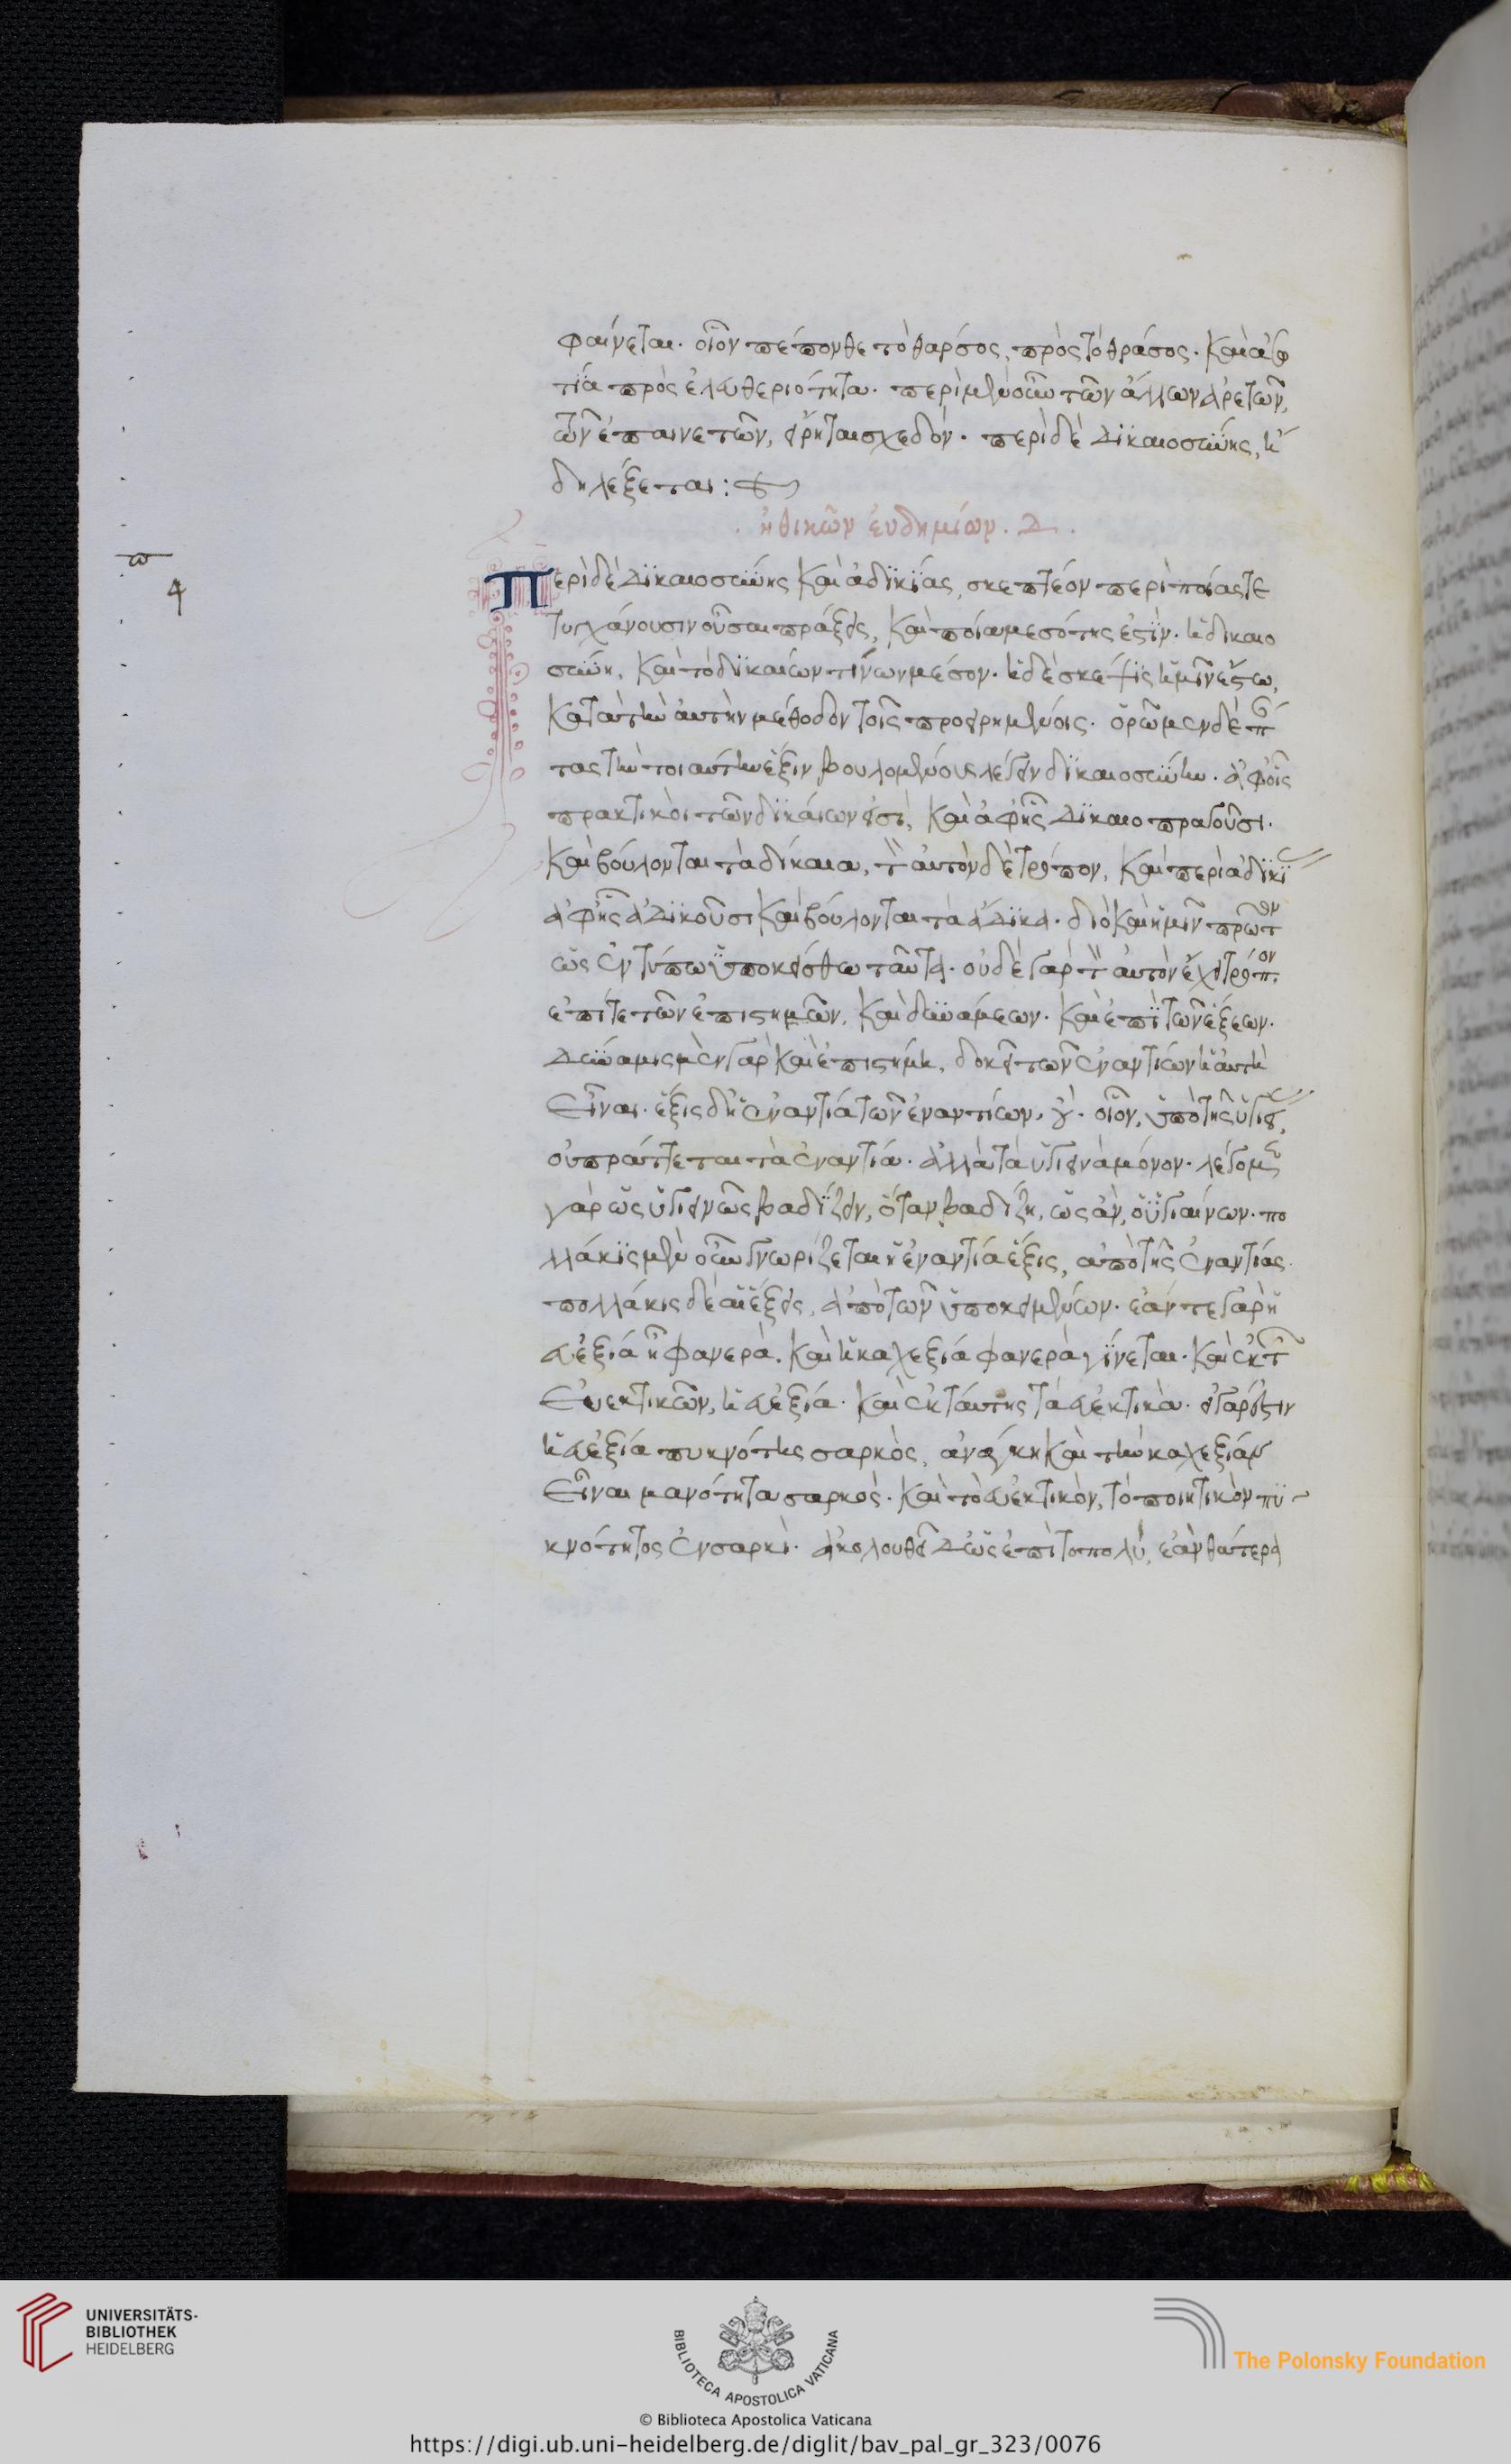 φαίνεται. οἷον πέπονθε τὸ θάρσος, πρὸς τὸ θράσος. καὶ ἀσω
τία πρὸς ἐλευθεριότητα. περὶ μὲν οὖν τῶν ἄλλων ἀρετῶν,
τῶν ἐπαινετῶν, εἴρηται σχεδόν. περὶ δὲ δϊκαιοσύνης, ἤ
δη λέξεται:
. ἠθικῶν εὐδημίων. Δ.
ω
4
Περὶ δὲ δϊκαιοσύνης καὶ ἀδϊκΐας, σκεπτέον περὶ ποίας τε
τυγχάνουσιν οὖσαι πράξεις, καὶ ποία μεσότης ἐστὶν. ἡ δικαιο
σύνη, καὶ τὸ δϊκαιέων τίνων μέσον. ἡ δὲ σκέψϊς ἡμῖν ἔστω,
κατὰ τὴν αὐτὴν μέθοδον τοῖς προειρημένοις. ὁρῶμεν δὲ π
τας τὴν τοιαύτην ἕξιν βουλομένους λέγειν δϊκαιοσύνην. ἀφ' οἷς
πρακτικοὶ τῶν δϊκάιων εἰσὶ, καὶ ἀφ' ἧς δϊκαιοπραγοῦσι.
καὶ βούλονται τὰ δίκαια, τ αὐτὸν δὲ τρόπον, καὶ περὶ ἀδϊκϊ
ἀφ' ἧς ἀδϊκοῦσι καὶ βούλονται τὰ ἄδϊκα. διὸ καὶ ἡμῖν πρῶτον
ὡς ἐν τύπω ὑποκείσθω ταῦτα. οὐδὲ γὰρ τ αὐτὸν ἔχει τρόπον
ἐπί τε τῶν ἐπιστημῶν, καὶ δυνάμεων. καὶ ἐπὶ τῶν ἕξεων.
Δύναμις μὲν γὰρ καὶ ἐπιστήμη, δοκεῖ τῶν ἐναντίων ἡ αὐτὴ
εἶναι. ἕξις δ' ἡ ἐναντία τῶν ἐναντίων, οὔ. οἷον, ὑπὸ τῆς ὑγιεί,
οὐ πράττεται τὰ ἐναντία. ἀλλὰ τὰ ὑγιεινὰ μόνον. λέγομεν
γὰρ ὡς ὑγιεινῶς βαδΐζειν, ὅταν βαδίζη, ὡς ἂν, ὁ ὑγιαίνων. πο
λλάκϊς μὲν οὖν γνωρίζεται ἡ ἐναντία ἕξις, ἀπὸ τῆς ἐναντίας.
πολλάκις δὲ αἱ ἕξεις, ἀπὸ τῶν ὑποκειμένων. ἐάν τε γὰρ ἡ
εὐεξία ἦ φανερὰ. καὶ ἡ καχεξία φανερὰ γίνεται. καὶ ἐκ τ
εὐεκτικῶν, ἡ εὐεξία. καὶ ἐκ ταύτης τὰ εὐεκτικὰ. εἰ γάρ ἐστιν
ἡ εὐεξία πυκνότης σαρκὸς, ἀνάγκη καὶ τὴν καχεξίαν
εἶναι μανότητα σαρκὸς. καὶ τὸ εὐεκτικὸν, τὸ ποιητικὸν πϋ
κνότητος ἐν σαρκὶ. ἀκολουθεῖ δ' ὡς ἐπὶ τοπολὺ, ἐὰν θάτερα
UNIVERSITÄTS-
BIBLIOTHEK
HEIDELBERG
BIBLIOTECA APOSTOLICA VATICANA
The Polonsky Foundation
© Biblioteca Apostolica Vaticana
https://digi.ub.uni-heidelberg.de/diglit/bav_pal_gr_323/0076